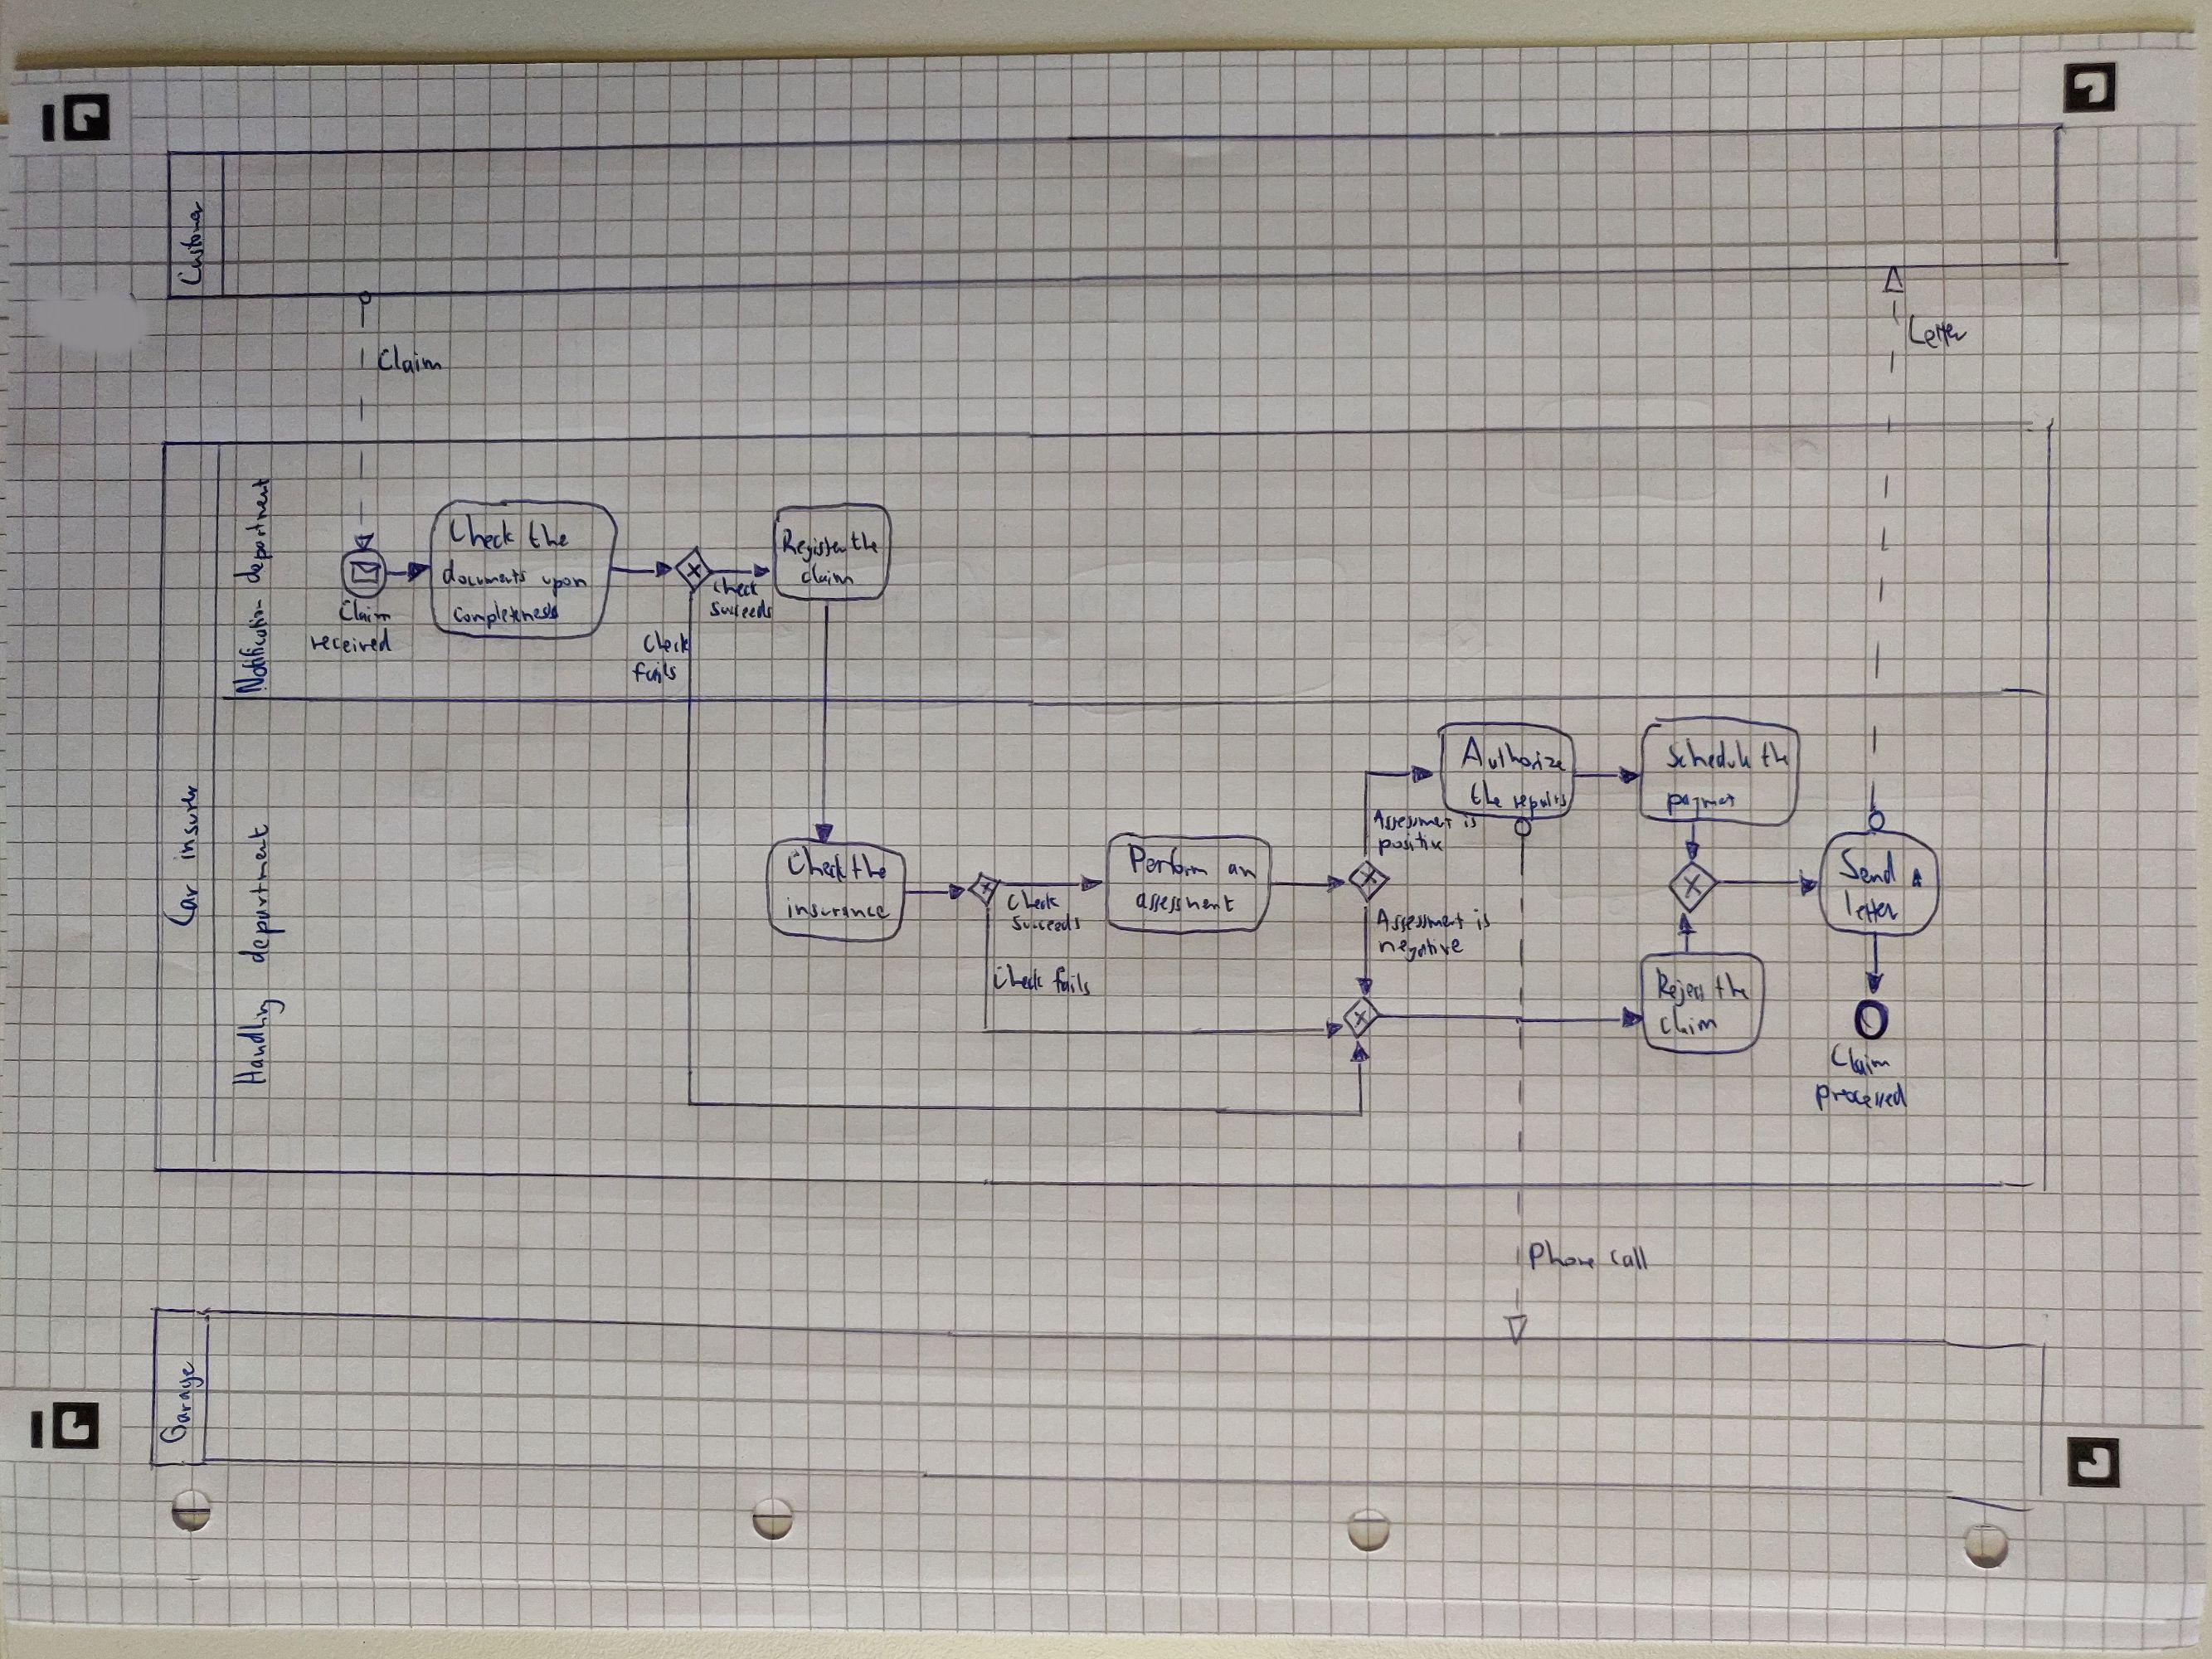 Customer
Claim
Letter
Car insurer
Notification department
Claim
received
Check the
documents upon
completeness
Check
succeeds
Check
fails
Register the
claim
Handling department
Check the
insurance
Check
succeeds
Check fails
Perform an
assessment
Assessment is
positive
Assessment is
negative
Authorize
the repairs
Schedule the
Reject the
claim
Send a
letter
Claim
processed
Phone call
Garage